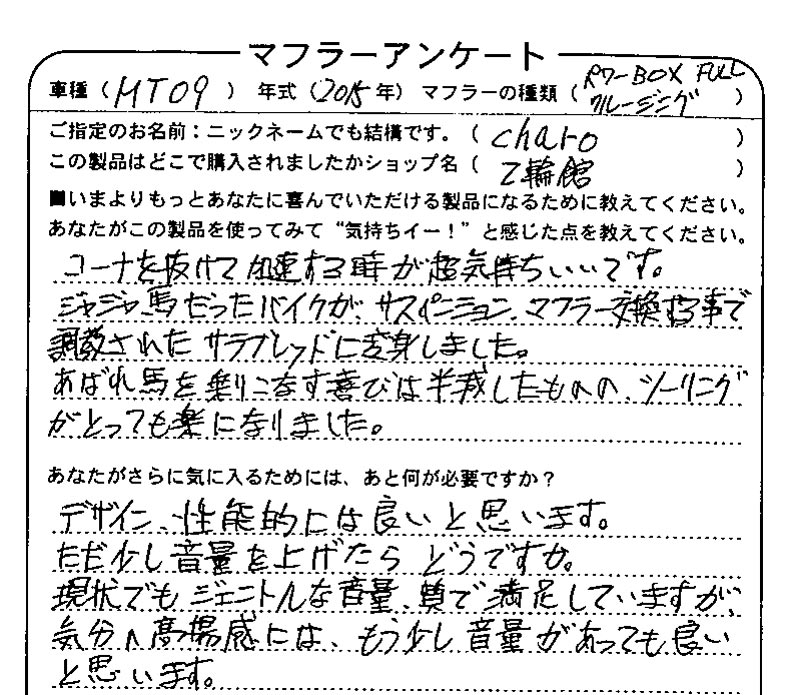 マフラーアンケート
車種（MT09）年式（2015年）マフラーの種類（パワーBOX FULL クルージング）
ご指定のお名前：ニックネームでも結構です。（charo）
この製品はどこで購入されましたかショップ名（2輪館）
■いまよりもっとあなたに喜んでいただける製品になるために教えてください。
あなたがこの製品を使ってみて“気持ちイー！”と感じた点を教えてください。
コーナを抜けて加速する時が超気持ちいいです。
ジャジャ馬だったバイクが、サスペンション、マフラー交換する事で
調教されたサラブレッドに変身しました。
あばれ馬を乗りこなす喜びは半減したものの、ツーリング
がとっても楽になりました。
あなたがさらに気に入るためには、あと何が必要ですか？
デザイン、性能的には良いと思います。
ただ少し音量を上げたらどうですか。
現状でもジェントルな音量、質で満足していますが、
気分の高揚感には、もう少し音量があっても良い
と思います。